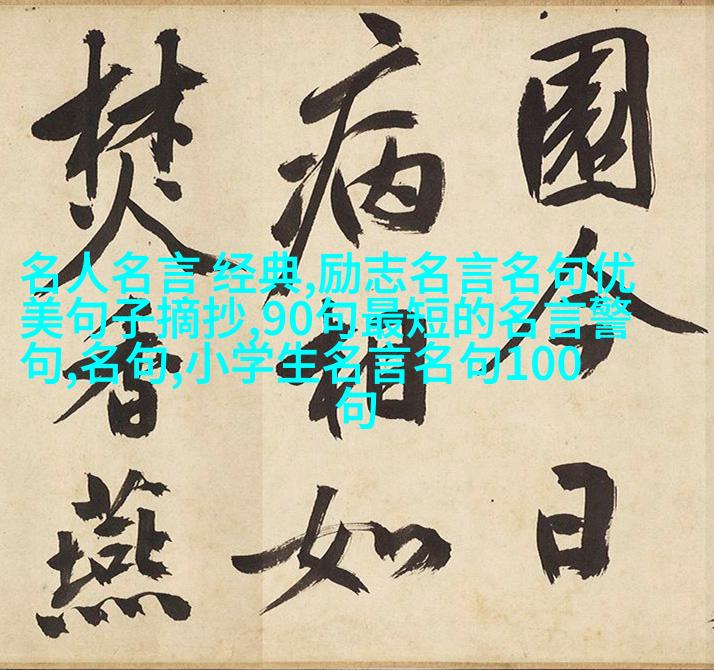 園今日
病相如
焚香燕
名人名言 经典,励志名言名句优
美句子摘抄,90句最短的名言警
句,名句,小学生名言名句100
句